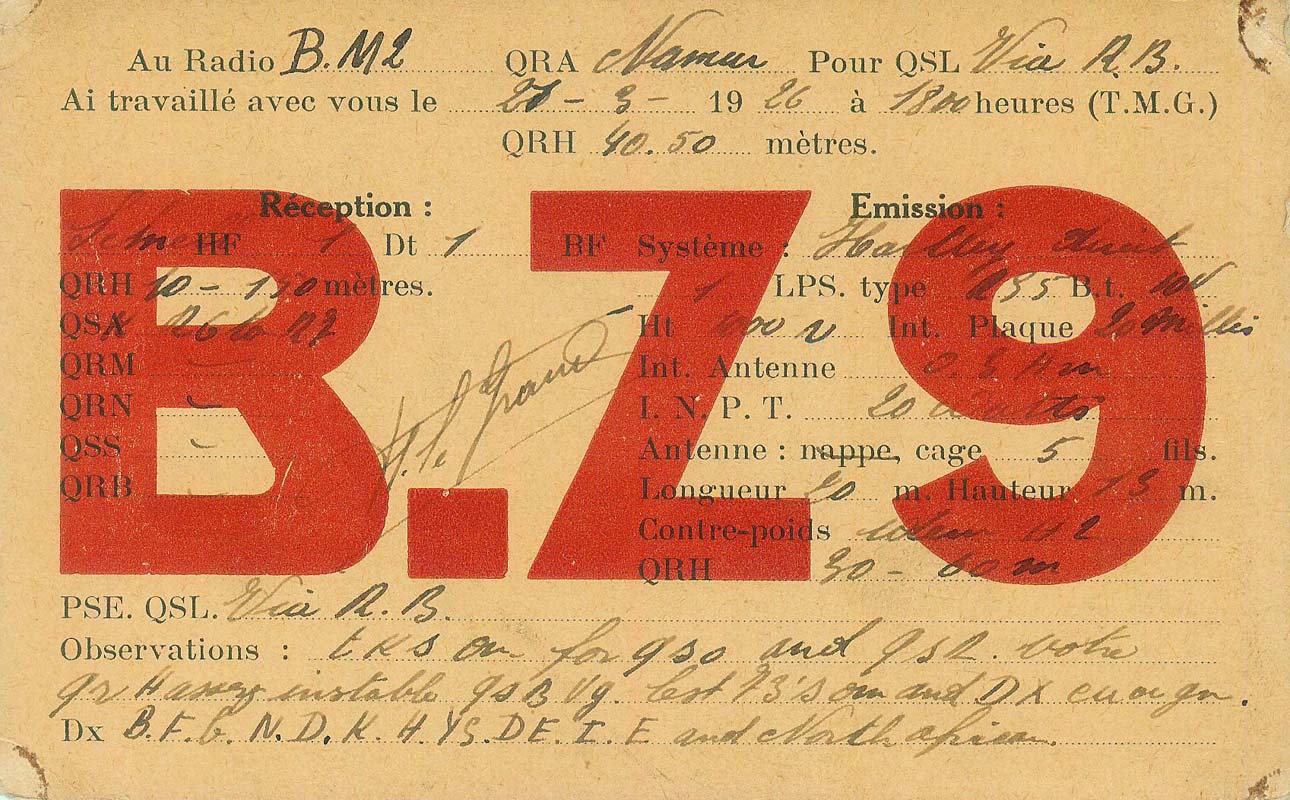 Au Radio B.M2 QRA Namur Pour QSL Via R.B.
Ai travaillé avec vous le 21 - 3 - 1926 à 1800 heures (T.M.G.)
QRH 40.50 mètres.
B.Z9
Réception :
HF 1 Dt 1 BF
QRH 10 - 150 mètres.
QSA R6 to R7
QRM -
QRN -
QSS -
QRB
Emission :
Système : Hartley direct
1 LPS. type B.t. 10V
Ht v Int. Plaque 20 millis
Int. Antenne 0.3 Am
I. N. P. T. 20 watts
Antenne : nappe, cage 5 fils.
Longueur 20 m. Hauteur 13 m.
Contre-poids
QRH 30 - 60 m
PSE. QSL. Via R.B.
Observations : tks om for qso and qsl. votre
qrh assez instable qsB Vy. best 73's om and DX cu agn.
Dx B.F.G.N.D.K.H.YS.DE.I.E and North african.